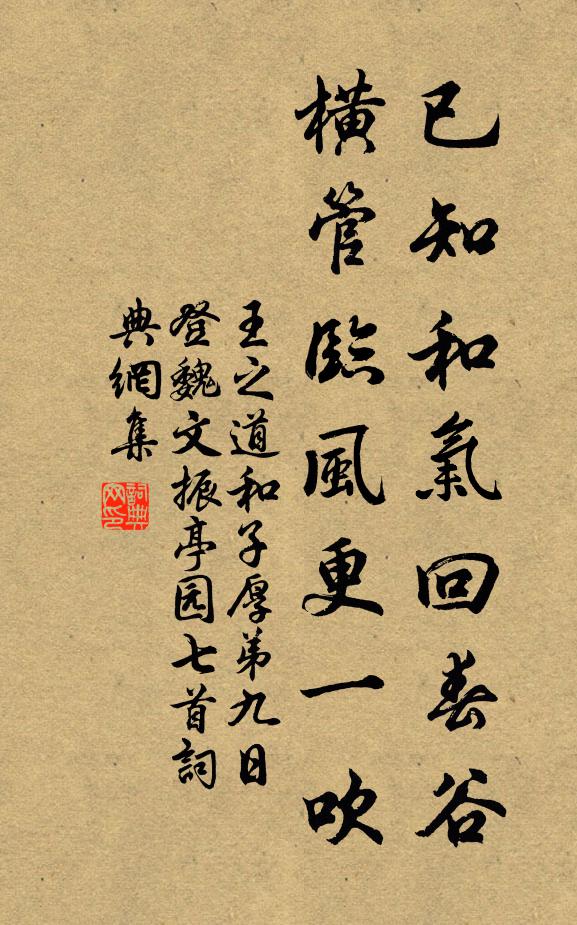 已知和氣回春谷
橫管臨風更一吹
王之道和子厚弟九日
登魏文振亭园七首詞
典網集
詞典
网印